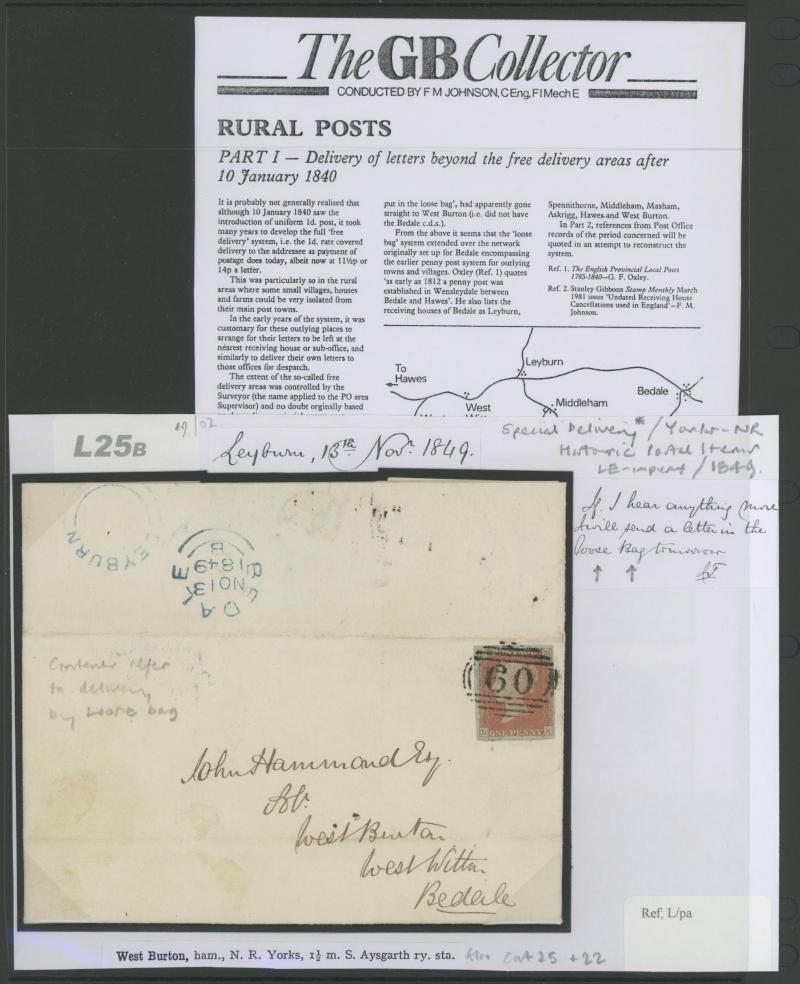 The GB Collector
CONDUCTED BY F M JOHNSON, CEng, FIMechE
RURAL POSTS
PART I — Delivery of letters beyond the free delivery areas after
10 January 1840
It is probably not generally realised that
although 10 January 1840 saw the
introduction of uniform 1d. post, it took
many years to develop the full 'free
delivery' system, i.e. the 1d. rate covered
delivery to the addressee as payment of
postage does today, albeit now at 11½p or
14p a letter.
This was particularly so in the rural
areas where some small villages, houses
and farms could be very isolated from
their main post towns.
In the early years of the system, it was
customary for these outlying places to
arrange for their letters to be left at the
nearest receiving house or sub-office, and
similarly to deliver their own letters to
those offices for despatch.
The extent of the so-called free
delivery areas was controlled by the
Surveyor (the name applied to the PO area
Supervisor) and no doubt orginally based
put in the loose bag', had apparently gone
straight to West Burton (i.e. did not have
the Bedale c.d.s.).
From the above it seems that the 'loose
bag' system extended over the network
originally set up for Bedale encompassing
the earlier penny post system for outlying
towns and villages. Oxley (Ref. 1) quotes
'as early as 1812 a penny post was
established in Wensleydale between
Bedale and Hawes'. He also lists the
receiving houses of Bedale as Leyburn,
Spennithorne, Middleham, Masham,
Askrigg, Hawes and West Burton.
In Part 2, references from Post Office
records of the period concerned will be
quoted in an attempt to reconstruct the
system.
Ref. 1. The English Provincial Local Posts
1765-1840—G. F. Oxley.
Ref. 2. Stanley Gibbons Stamp Monthly March
1981 issue 'Undated Receiving House
Cancellations used in England'—F. M.
Johnson.
To
Hawes
Leyburn
Bedale
West
Middleham
L25B
Leyburn, 13th Novr. 1849.
Special Delivery* / Yorks-NR
Historic Postal Items
/ 1849.
If I hear anything more
I will send a letter in the
loose Bag tomorrow
LEYBURN
BEDALE
NO13
1849
B
Contents refer
to delivery
by loose bag
60
ONE PENNY
John Hammond Esq.
Solr.
West Burton
West Witton
Bedale
Ref; L/pa
West Burton, ham., N. R. Yorks, 1½ m. S. Aysgarth ry. sta. Also Cat 25 + 22